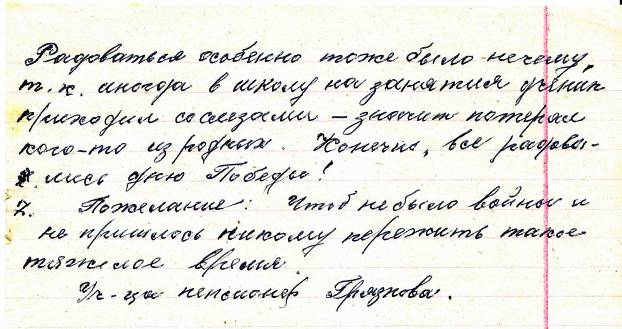 Радоваться особенно тоже было нечему,
т.к. иногда в школу на занятия ученик
приходил со слезами – значит потерял
кого-то из родных. Конечно, все радова-
лись дню Победы!
7. Пожелание: Чтоб не было войной и
не пришлось никому пережить такое
тяжелое время.
Уч-ца пенсионер Грязнова.